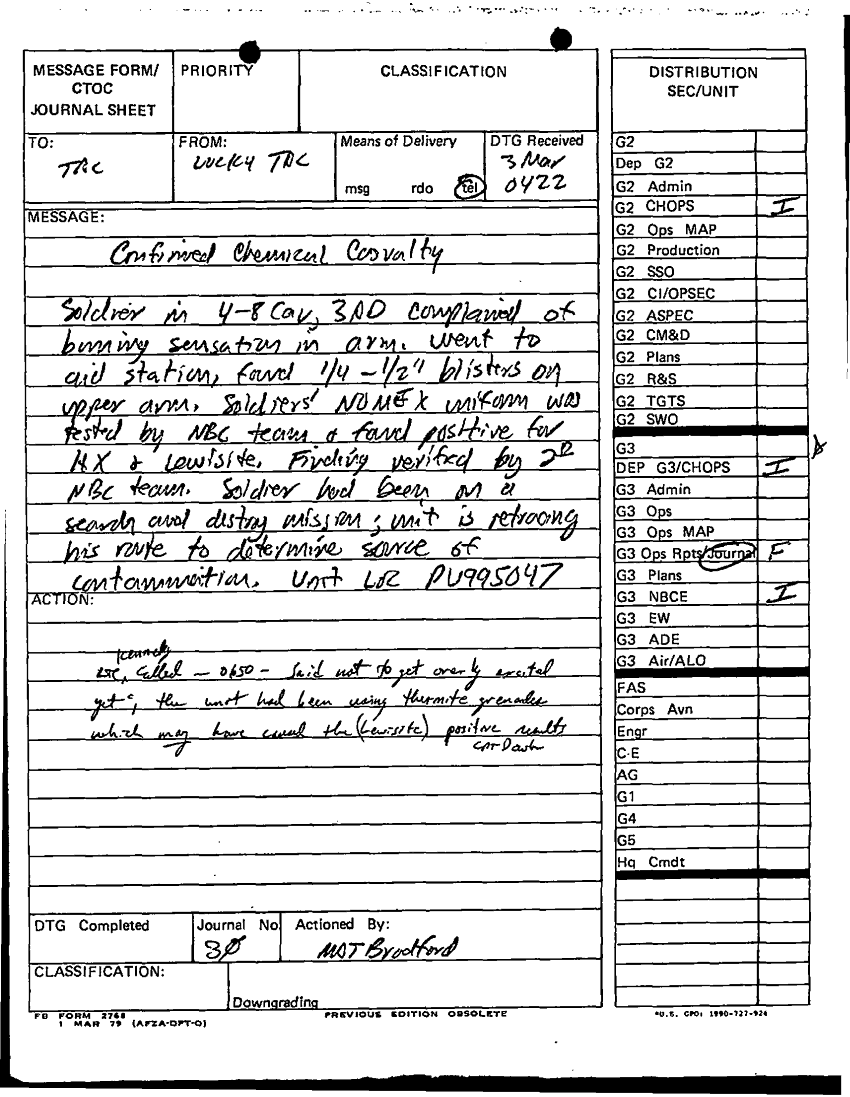 MESSAGE FORM/
CTOC
JOURNAL SHEET
PRIORITY
CLASSIFICATION
TO:
TAC
FROM:
LUCKY TAC
Means of Delivery
msg rdo tel
DTG Received
3 Mar
0422
MESSAGE:
Confirmed Chemical Casualty
Soldier in 4-8 Cav, 3AD complained of
burning sensation in arm. Went to
aid station, found 1/4 - 1/2" blisters on
upper arm. Soldiers' NOMEX uniform was
tested by NBC team & found positive for
HX & Lewisite. Finding verified by 2D
NBC team. Soldier had been on a
search and distroy mission; unit is retracing
his route to determine source of
contamination. Unit LOC PU995047
ACTION:
Kennedy
called - 0650 - Said not to get overly excited
yet", the unit had been using thermite grenades
which may have caused the (Lewisite) positive results
CPT Dash
DTG Completed
Journal No
30
Actioned By:
CLASSIFICATION:
Downgrading
FB FORM 2768
1 MAR 79 (AFZA-DPT-O)
PREVIOUS EDITION OBSOLETE
DISTRIBUTION
SEC/UNIT
G2
Dep G2
G2 Admin
G2 CHOPS I
G2 Ops MAP
G2 Production
G2 SSO
G2 CI/OPSEC
G2 ASPEC
G2 CM&D
G2 Plans
G2 R&S
G2 TGTS
G2 SWO
G3
DEP G3/CHOPS I
G3 Admin
G3 Ops
G3 Ops MAP
G3 Ops Rpts/Journal F
G3 Plans
G3 NBCE I
G3 EW
G3 ADE
G3 Air/ALO
FAS
Corps Avn
Engr
C-E
AG
G1
G4
G5
Hq Cmdt
*U.S. GPO: 1990-727-924